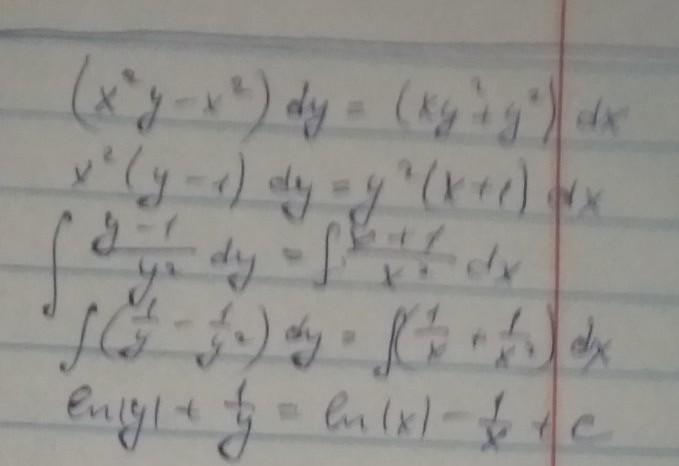 (x²y - x²) dy = (xy² + y²) dx
x²(y - 1) dy = y²(x + 1) dx
∫ (y - 1)/y² dy = ∫ (x + 1)/x² dx
∫ (1/y - 1/y²) dy = ∫ (1/x + 1/x²) dx
ln|y| + 1/y = ln|x| - 1/x + C